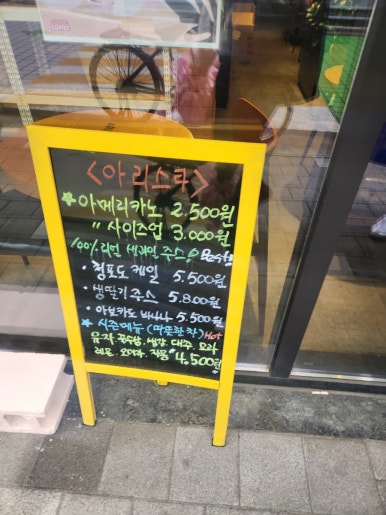 COFFEE
<아리스타>
아메리카노 2.500원
〃 사이즈업 3.000원
100% 리얼 주스 Best!!
· 청포도 케일 5.500원
· 생딸기 주스 5.800원
· 아보카도 바나나 5.500원
시즌메뉴 (따뜻한 차) Hot
유자 생강, 대추, 모과
레몬, 오미자, 자몽 4.500원